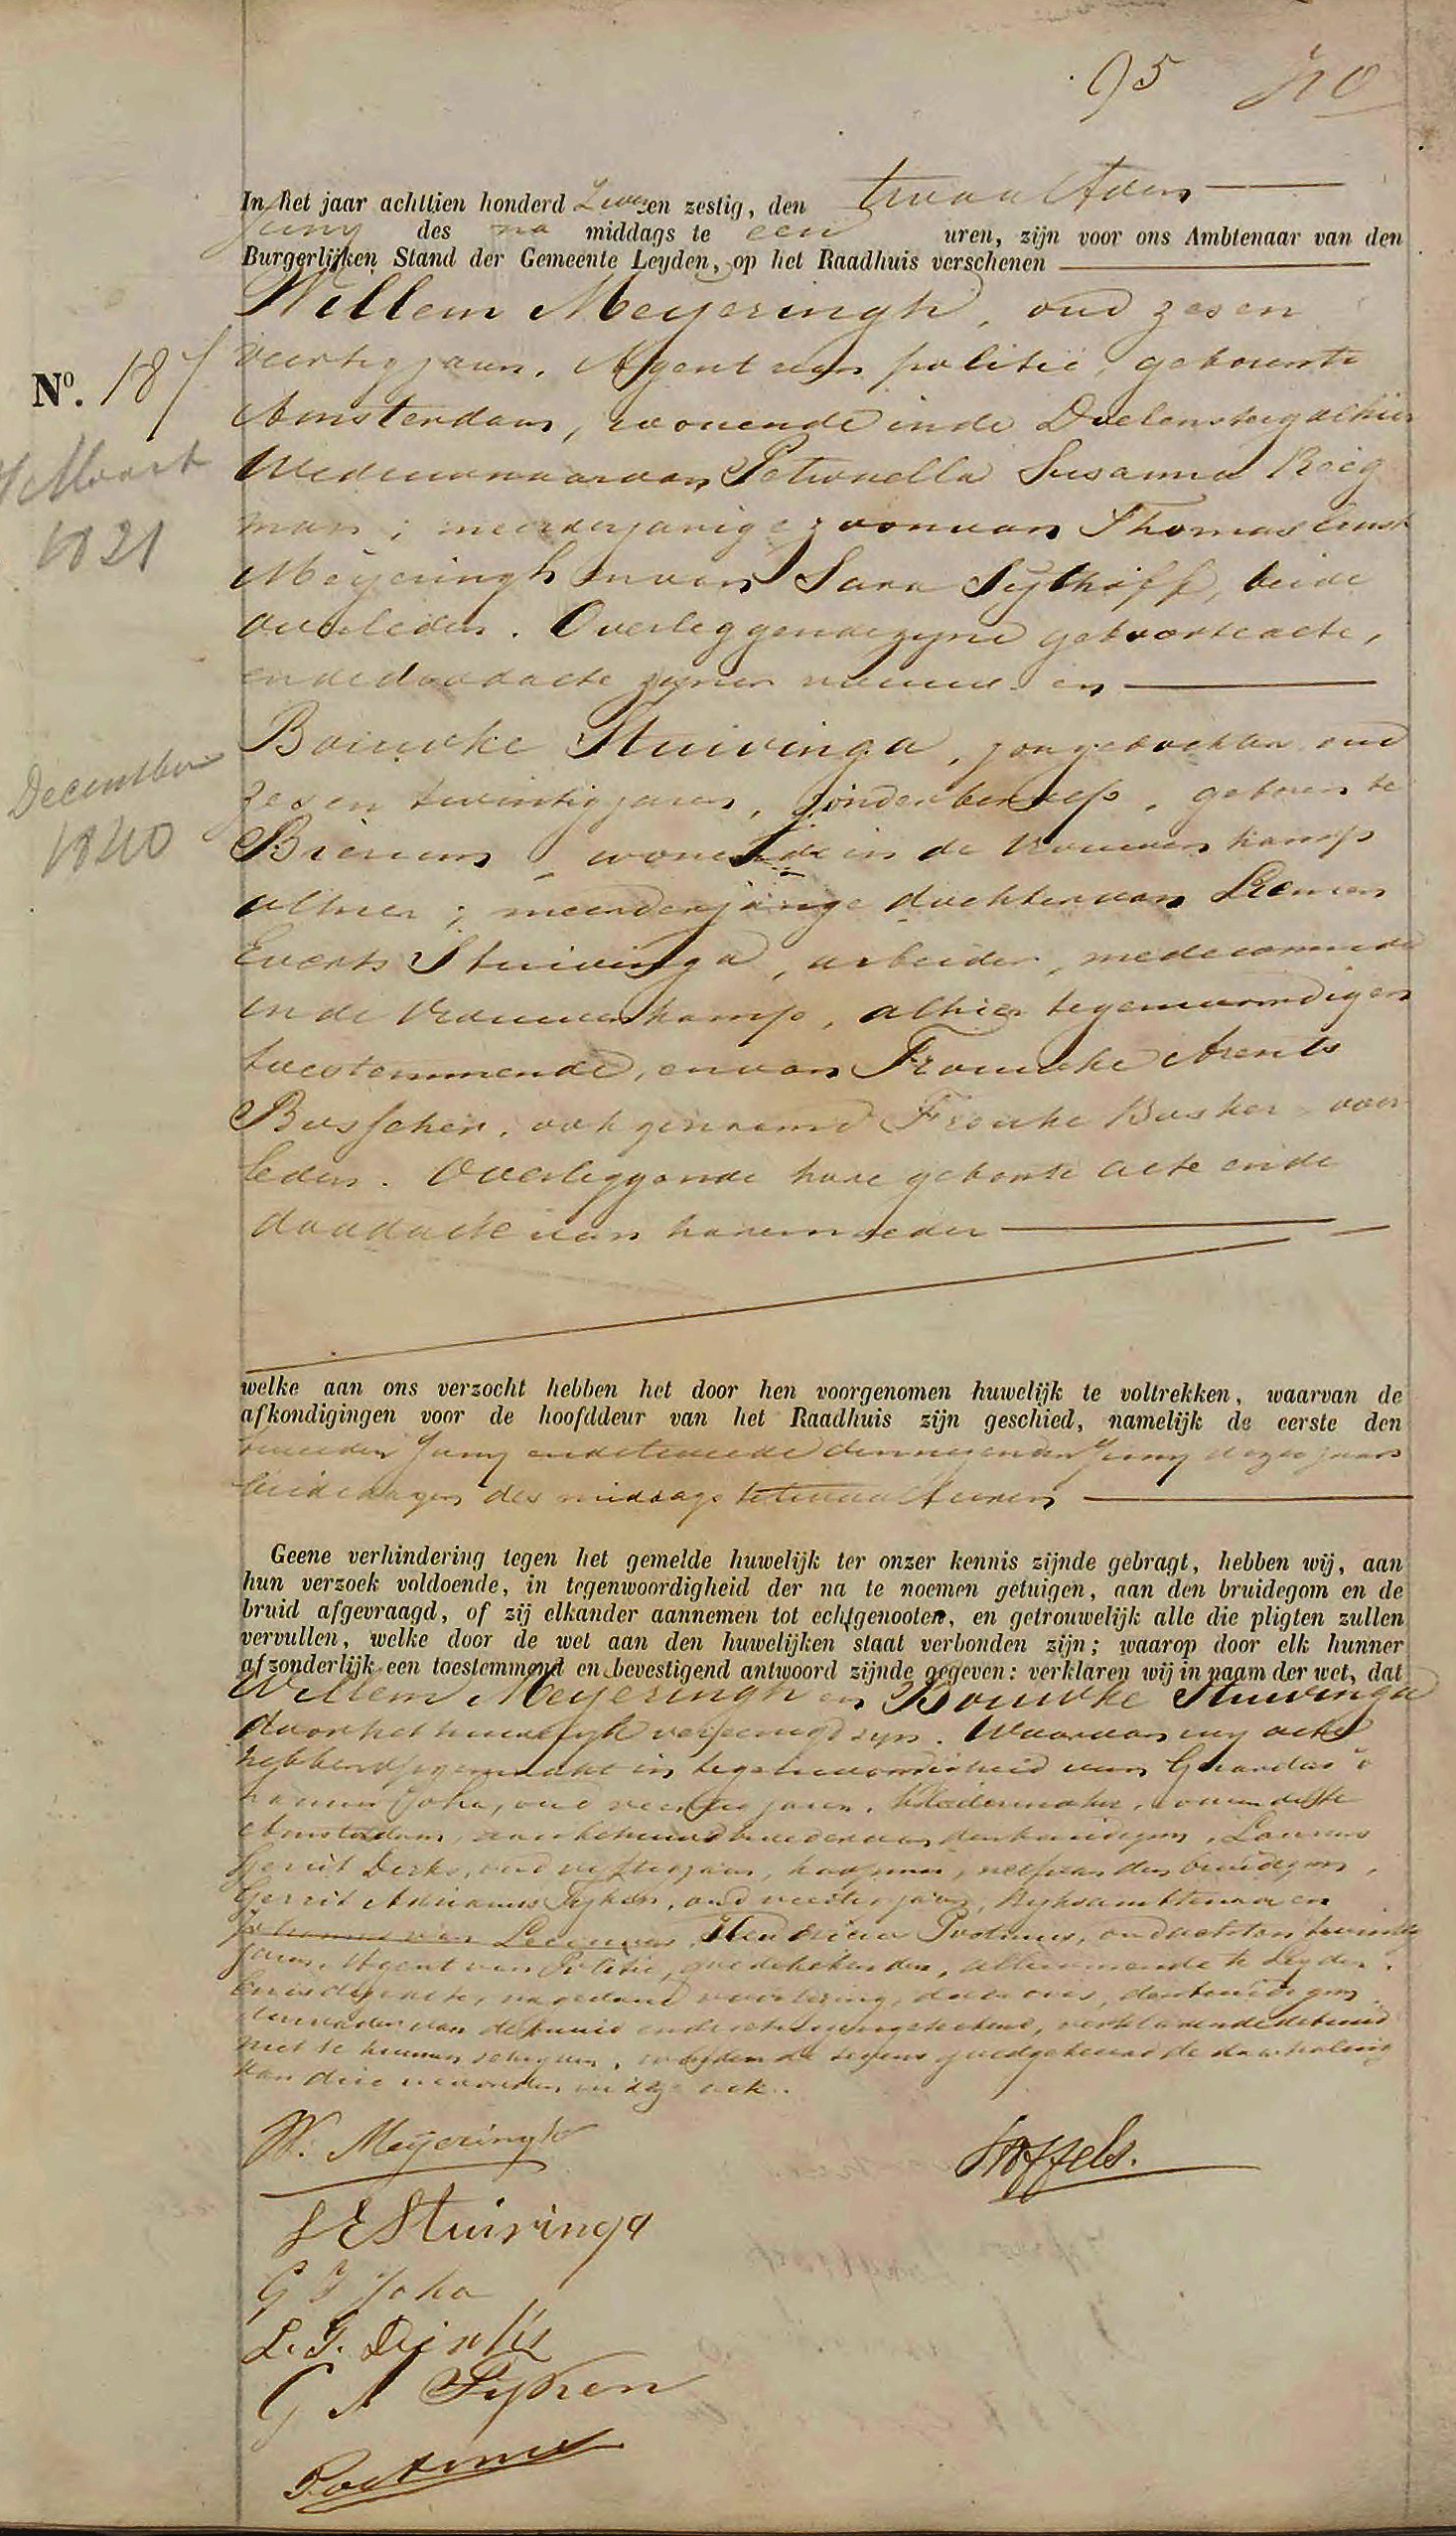 95
In het jaar achttien honderd Zeven en zestig, den twaalfden
Juny des na middags te een uren, zijn voor ons Ambtenaar van den
Burgerlijken Stand der Gemeente Leyden, op het Raadhuis verschenen
Willem Meyeringh, oud zes en
veertig jaren, Agent van politie, geboren te
Amsterdam, wonende in de Doelensteeg alhier
Weduwnaar van Petronella Susanna
man; meerderjarige zoon van Thomas Ernst
Meyeringh en van Sara Sijthoff, beide
overleden. Overleggende zyne geboorteacte,
en de doodacte zyner vrouw en
Bouwke Stuivinga, jongedochter oud
zes en twintig jaren, zonder beroep, geboren te
Bierum, wonende in de Vrouwenkamp
alhier; meerderjarige dochter van Louwer
Everts Stuivinga, arbeider, mede wonende
in de Vrouwenkamp, alhier tegenwoordig en
toestemmende, en van Frouwke Arents
Busscher, ook genaamd Frouke Busker over
leden. Overleggende hare geboorte acte en de
doodacte van hare moeder
No. 187
Maart
1821
December
1840
welke aan ons verzocht hebben het door hen voorgenomen huwelijk te voltrekken, waarvan de
afkondigingen voor de hoofddeur van het Raadhuis zijn geschied, namelijk de eerste den
tweeden Juny en de tweede den negenden Juny dezes jaars
beide dagen des middags te twaalf uren
Geene verhindering tegen het gemelde huwelijk ter onzer kennis zijnde gebragt, hebben wij, aan
hun verzoek voldoende, in tegenwoordigheid der na te noemen getuigen, aan den bruidegom en de
bruid afgevraagd, of zij elkander aannemen tot echtgenooten, en getrouwelijk alle die pligten zullen
vervullen, welke door de wet aan den huwelijken staat verbonden zijn; waarop door elk hunner
afzonderlijk een toestemmend en bevestigend antwoord zijnde gegeven: verklaren wij in naam der wet, dat
Willem Meyeringh en Bouwke Stuivinga
door het huwelyk vereenigd zyn. Waarvan wy acte
hebben opgemaakt in tegenwoordigheid van Gerardus
Joha, oud veertig jaren, kleedermaker, wonende te
Amsterdam, aanbehuwdbroeder van den bruidegom, Laurens
Gerrit Derks, oud vyftig jaren, koopman, neef van den bruidegom,
Gerrit Adrianus Fyken, oud veertig jaren, Ryksambtenaar en
Johannes van Leeuwen, Hendricus Postmus, oud acht en twintig
jaren, Agent van Politie, goede bekenden, allen wonende te Leyden.
En is deze acte, na gedane voorlezing, door ons, den bruidegom
den vader van de bruid en de getuigen geteekend, verklarende de bruid
niet te kunnen schryven, wordende tevens goedgekeurd de doorhaling
van drie woorden in deze acte.
W. Meyeringh
Stoffels.
L E Stuivinga
G J Joha
L. G. Derks
G A Fyken
Postmus